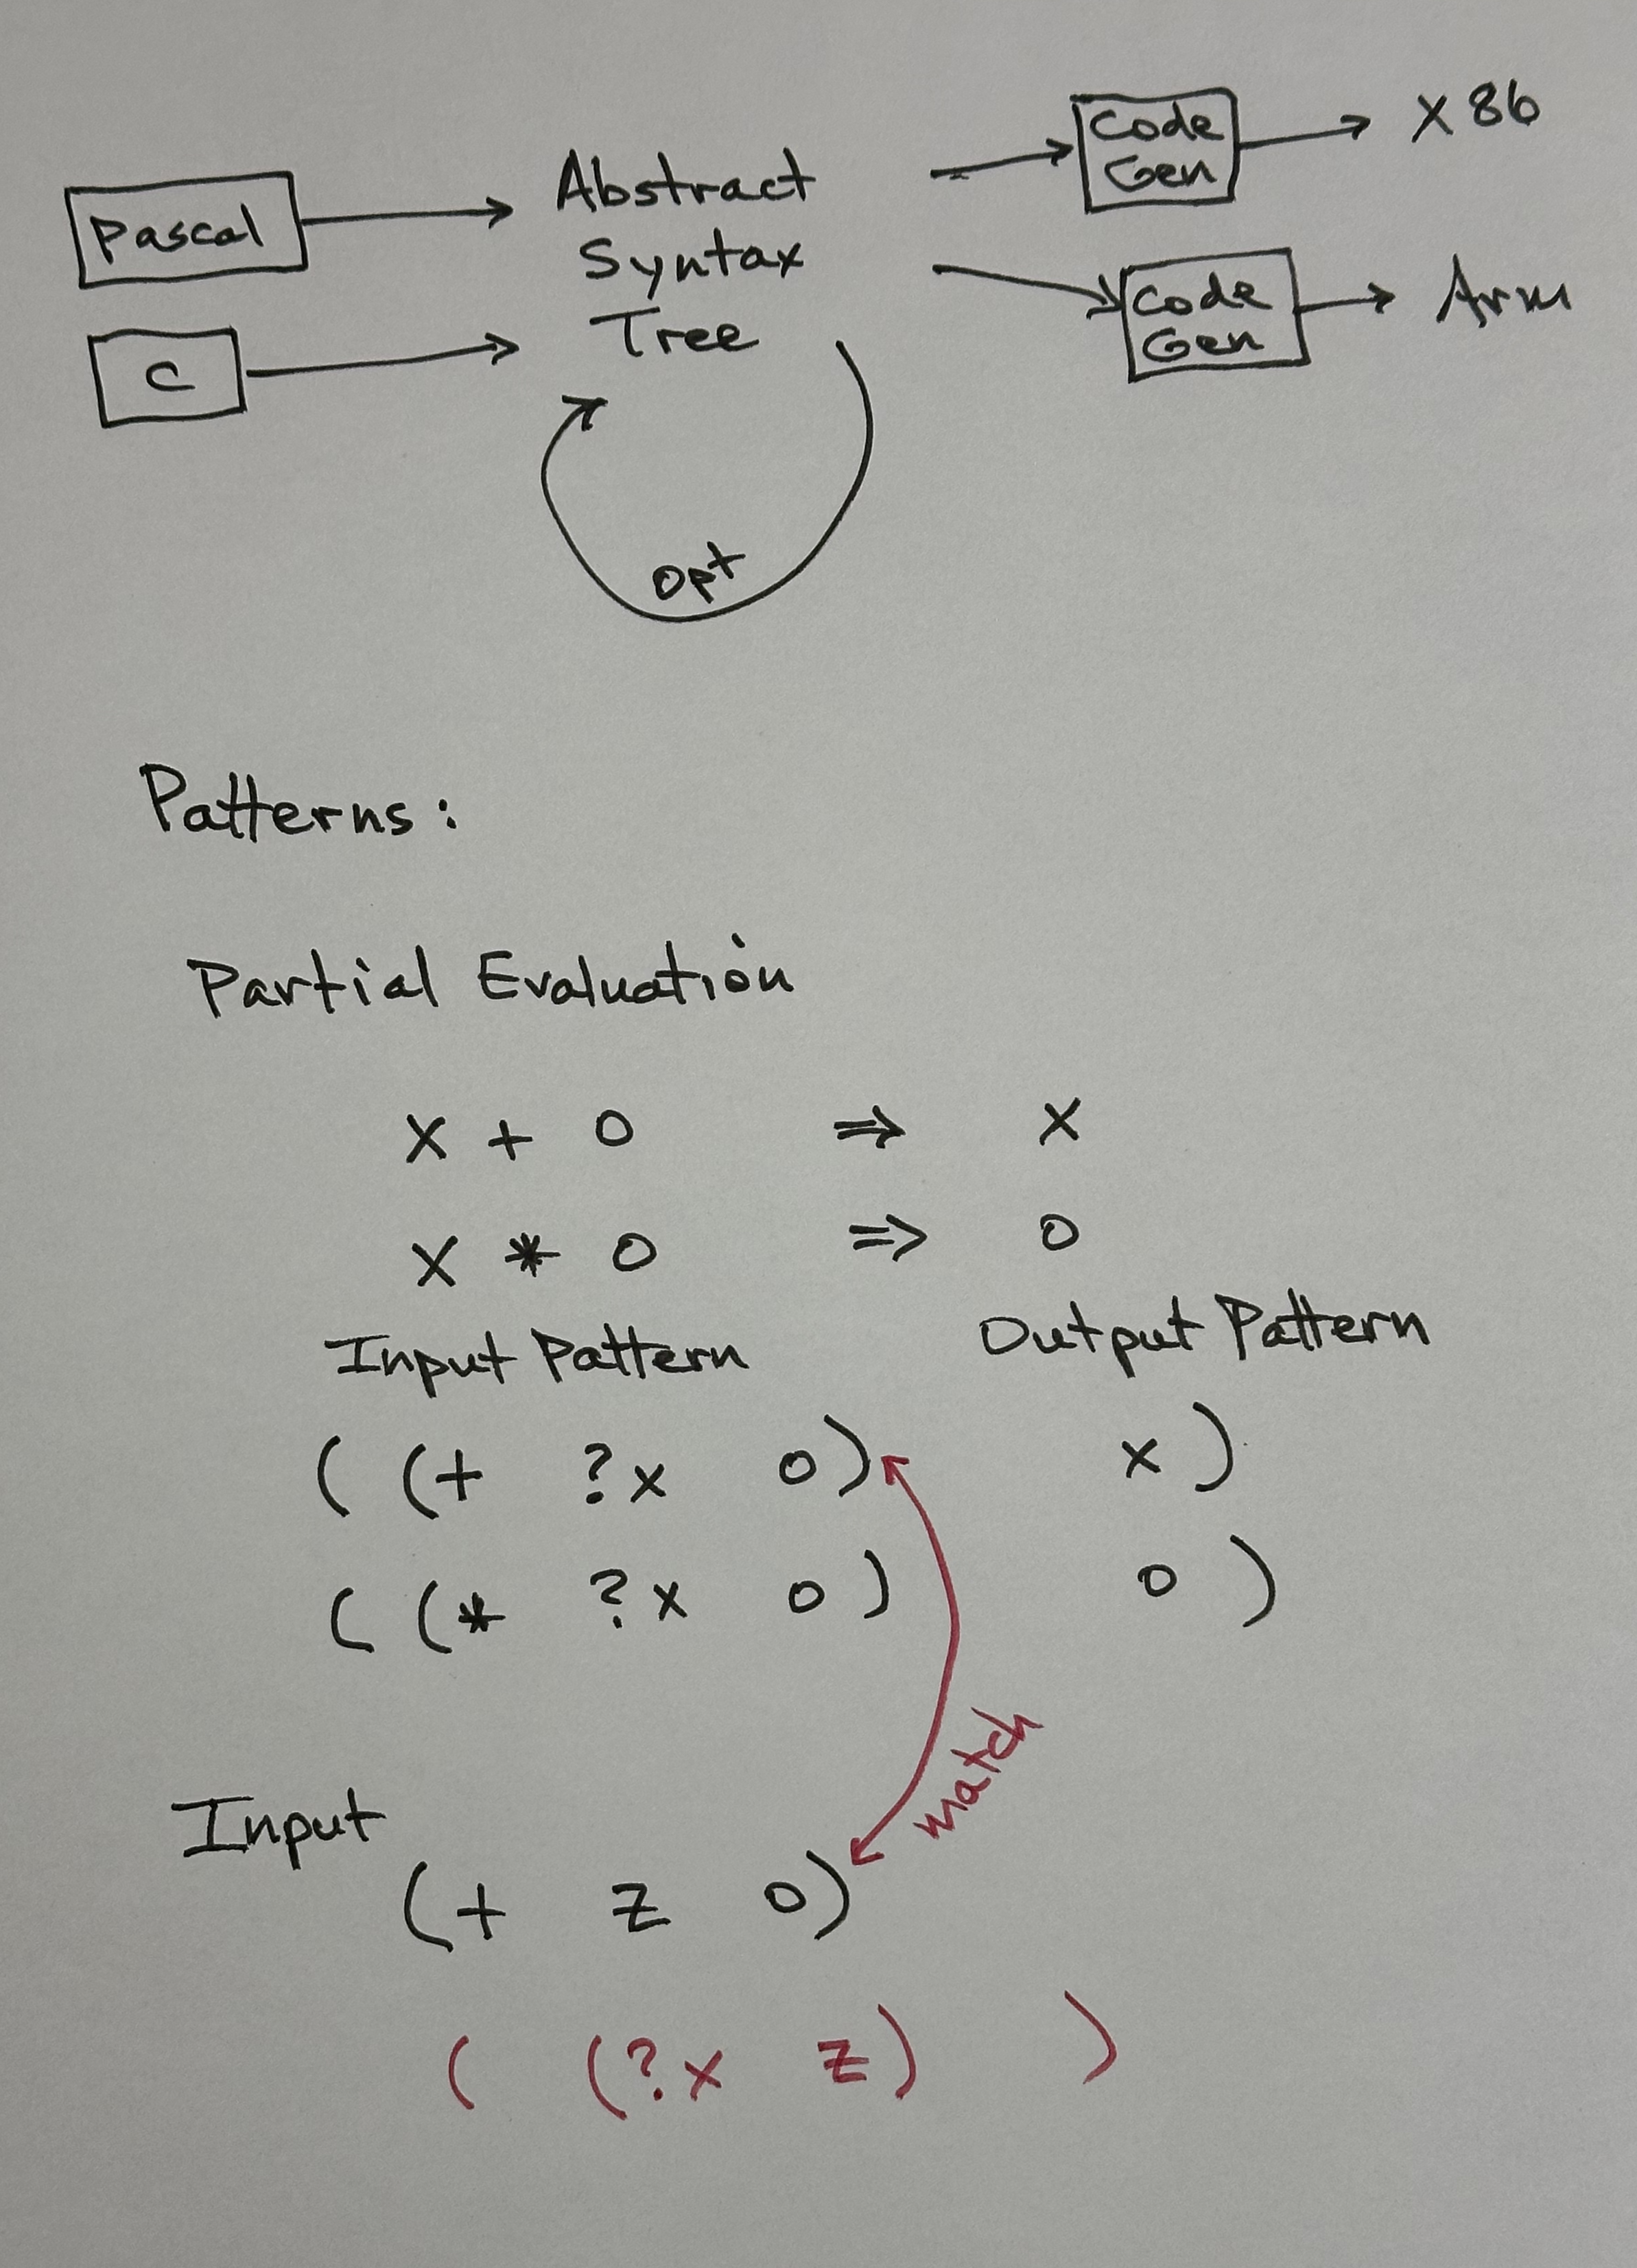 Pascal
C
Abstract
Syntax
Tree
Opt
Code
Gen
X86
Code
Gen
Arm
Patterns:
Partial Evaluation
x + 0 ⇒ x
x * 0 ⇒ 0
Input Pattern Output Pattern
( (+ ?x 0) x )
( (* ?x 0) 0 )
match
Input
(+ z 0)
( (?x z) )